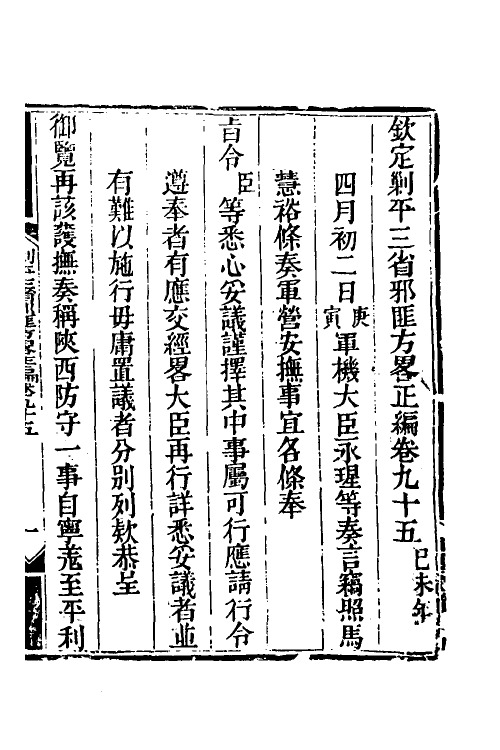 欽定剿平三省邪匪方畧正編卷九十五 己未年
四月初二日庚寅軍機大臣永瑆等奏言竊照馬
慧裕條奏軍營安撫事宜各條奉
旨令臣等悉心妥議謹擇其中事屬可行應請行令
遵奉者有應交經畧大臣再行詳悉妥議者並
有難以施行毋庸置議者分別列欵恭呈
御覽再該護撫奏稱陝西防守一事自寧羌至平利